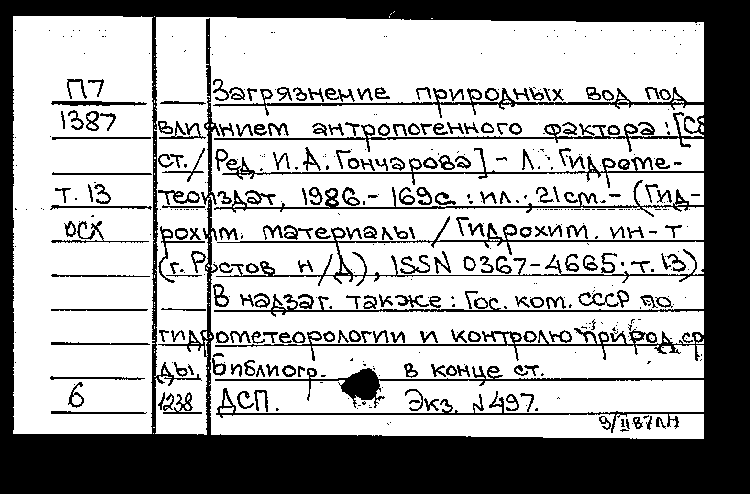 П7 Загрязнение природных вод под
1387 влиянием антропогенного фактора : [Сб
ст. / Ред. И. А. Гончарова]. - Л. : Гидроме-
т. 13 теоиздат, 1986. - 169с. : ил.; 21см. - (Гид-
ОСХ рохим. материалы / Гидрохим. ин-т
(г. Ростов н/Д), ISSN 0367-4665; т. 13).
В надзаг. также : Гос. ком. СССР по
гидрометеорологии и контролю природ. ср
ды. Библиогр. в конце ст.
6 1238 ДСП. Экз. №497.
9/II 87